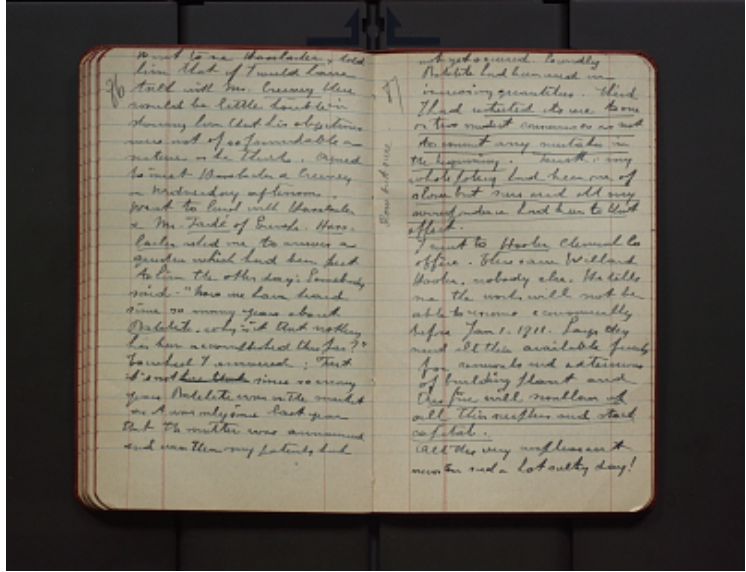 86
Went to see Hasslacher, told
him that if I would have
talk with Mr. Creevey there
would be little trouble in
showing him that his objections
were not of so formidable a
nature as he thinks. Agreed
to meet Hasslacher & Creevey
on Wednesday afternoon.
Went to lunch with Hasslacher
& Mr. of Hass-
lacher asked me to answer a
question which had been put
to him the other day: Somebody
said - "Now we have heard
since so many years about
Bakelite, why is it that nothing
has been accomplished thus far?"
To which I answered: First
it's not since so many
years Bakelite was in the market
as it was only since last year
that the matter was announced
and even then my patents had
87
not yet issued. Secondly
Bakelite had been used in
increasing quantities. Third
I had restricted its use to one
or two modest concerns so as not
to commit any mistakes in
the beginning. Fourth: my
whole policy had been one of
slow but sure and all my
correspondence had been to that
effect.
Slow but sure.
I went to Hooker Chemical Co
office. There saw Willard
Hooker, nobody else. He tells
me the works will not be
able to resume commercially
before Jan 1. 1911. Says they
need all their available funds
for renewals and extensions
of building plant and
this fire will swallow up
all their surplus and stock
capital.
All this very unpleasant
news on such a hot sultry day!